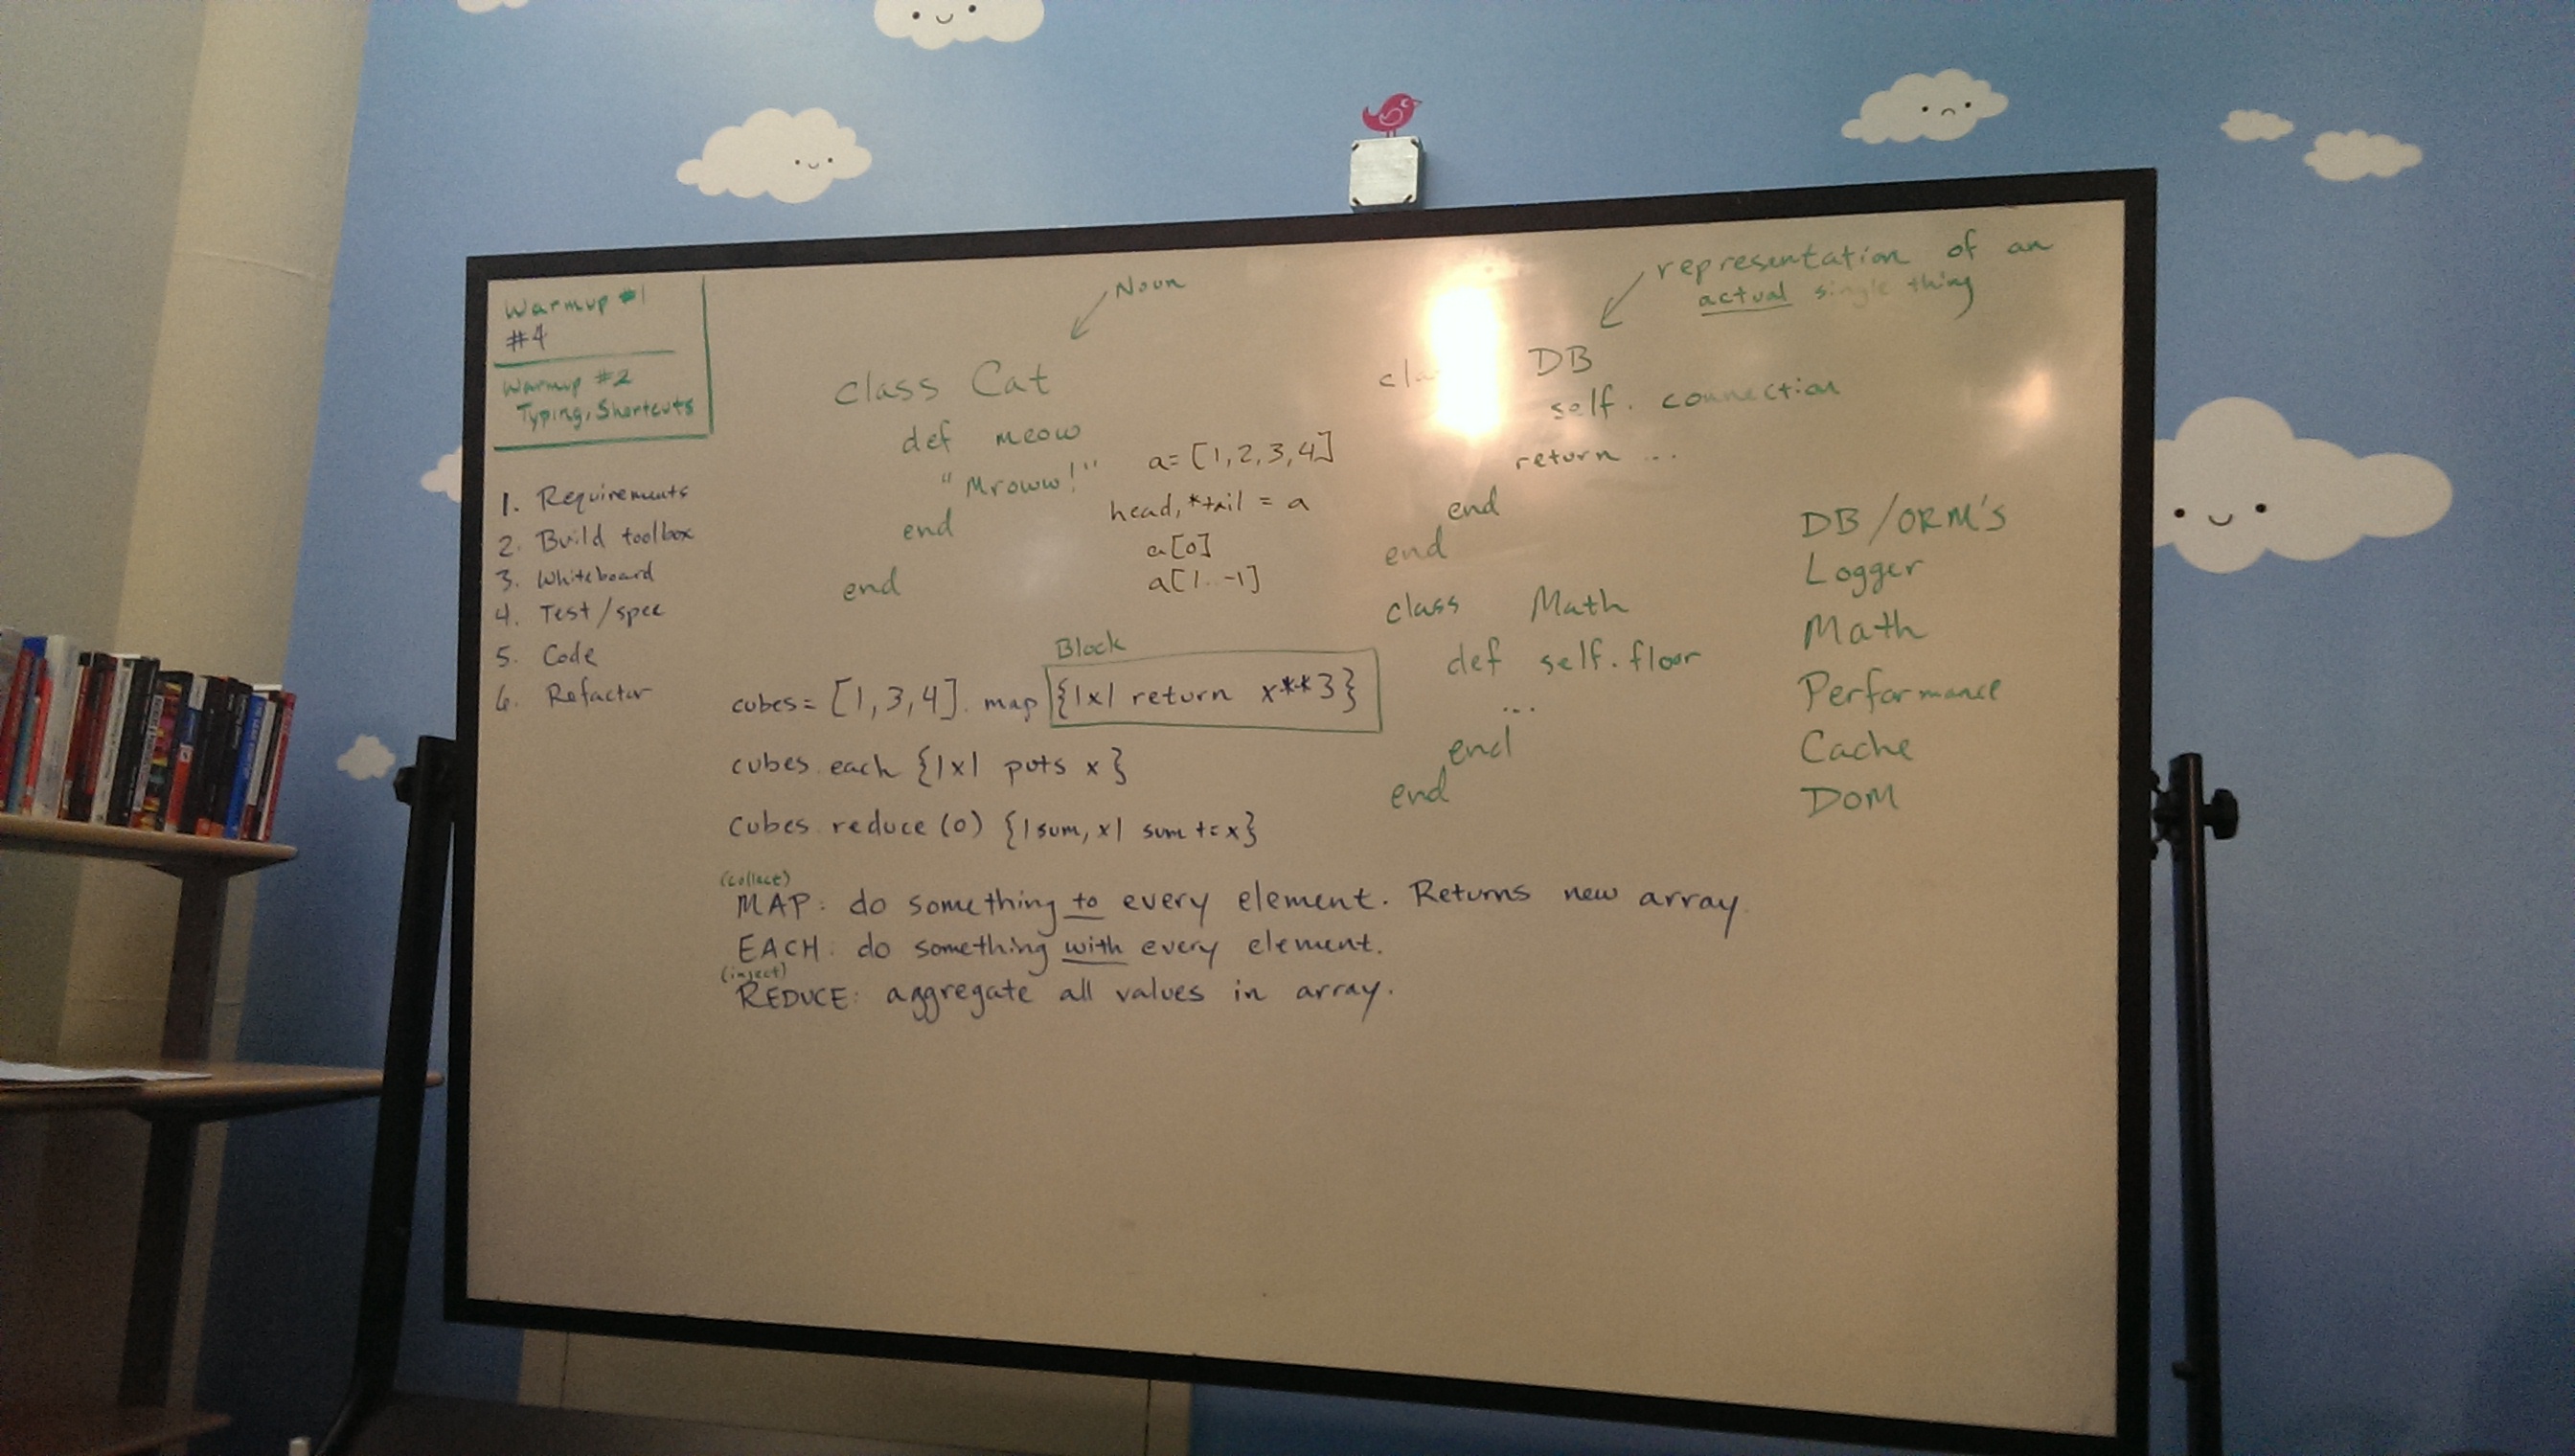 Warmup #1
#4
Warmup #2
Typing, Shortcuts
1. Requirements
2. Build toolbox
3. Whiteboard
4. Test/spec
5. Code
6. Refactor
Noun
class Cat
def meow
"Mroww!"
end
end
a=[1,2,3,4]
head,*tail = a
a[0]
a[1..-1]
representation of an
actual single thing
DB
self. connection
return ...
end
end
class Math
def self.floor
...
end
end
DB/ORM's
Logger
Math
Performance
Cache
DOM
Block
cubes= [1,3,4]. map {|x| return x**3}
cubes. each {|x| puts x}
cubes. reduce (0) {|sum, x| sum += x}
(collect)
MAP: do something to every element. Returns new array.
EACH: do something with every element.
(inject)
REDUCE: aggregate all values in array.